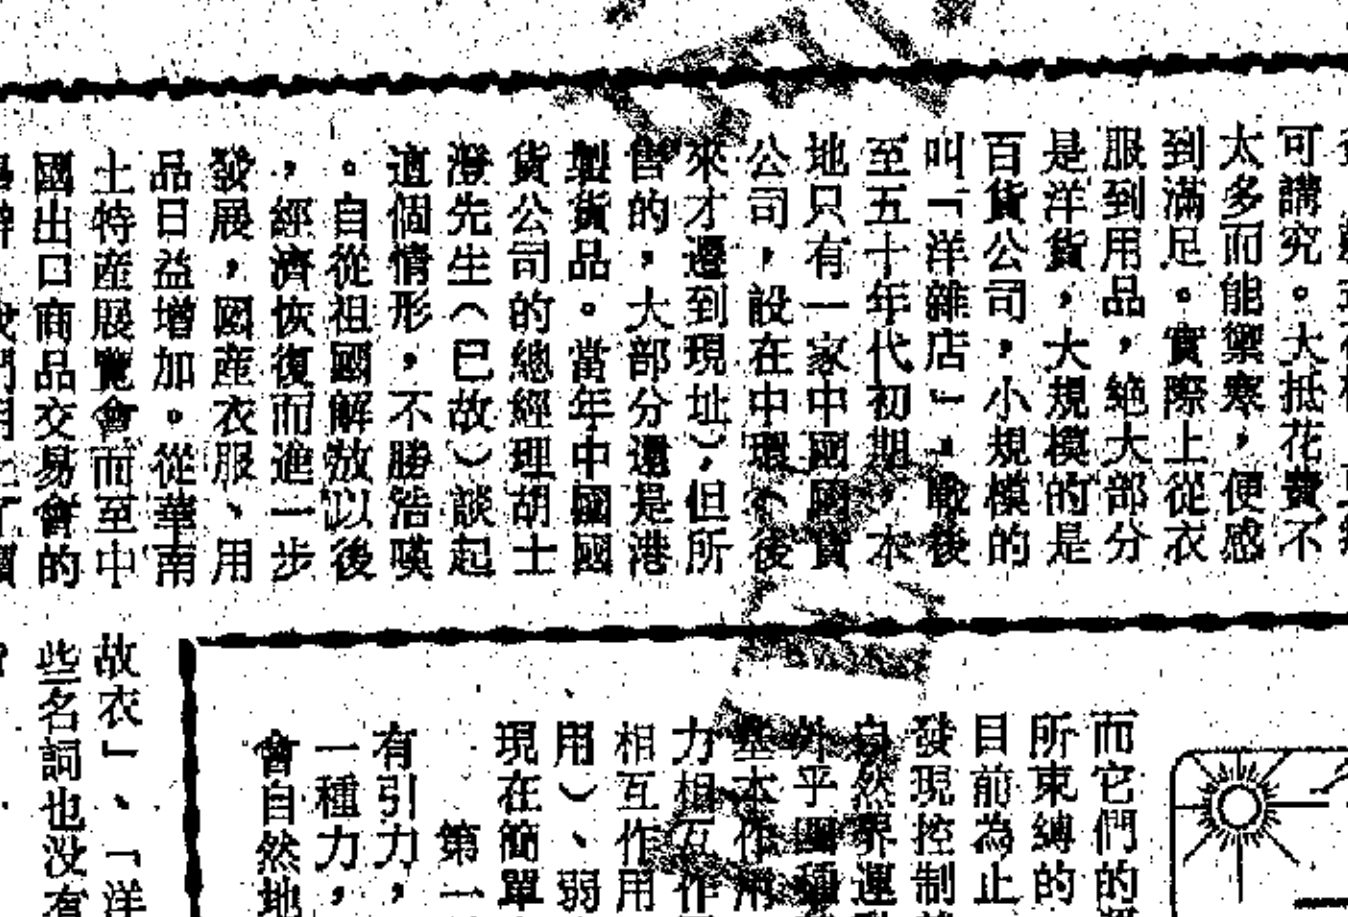 可講究。大抵花費不
太多而能禦寒，便感
到滿足。實際上從衣
服到用品，絶大部分
是洋貨，大規模的是
百貨公司，小規模的
叫「洋雜店」。戰後
至五十年代初期，本
地只有一家中國國貨
公司，設在中環（後
來才遷到現址），但所
售的，大部分還是港
製貨品。當年中國國
貨公司的總經理胡士
澄先生（已故）談起
這個情形，不勝浩嘆
。自從祖國解放以後
，經濟恢復而進一步
發展，國産衣服、用
品日益增加。從華南
土特産展覽會而至中
國出口商品交易會的
故衣」、「洋
些名詞也没有
而它們的
所束縛的
目前為止
發現控制
自然界運
外乎四種
基本作用
力相互作
相互作用
用）、弱
現在簡單
第一
有引力，
一種力，
會自然地